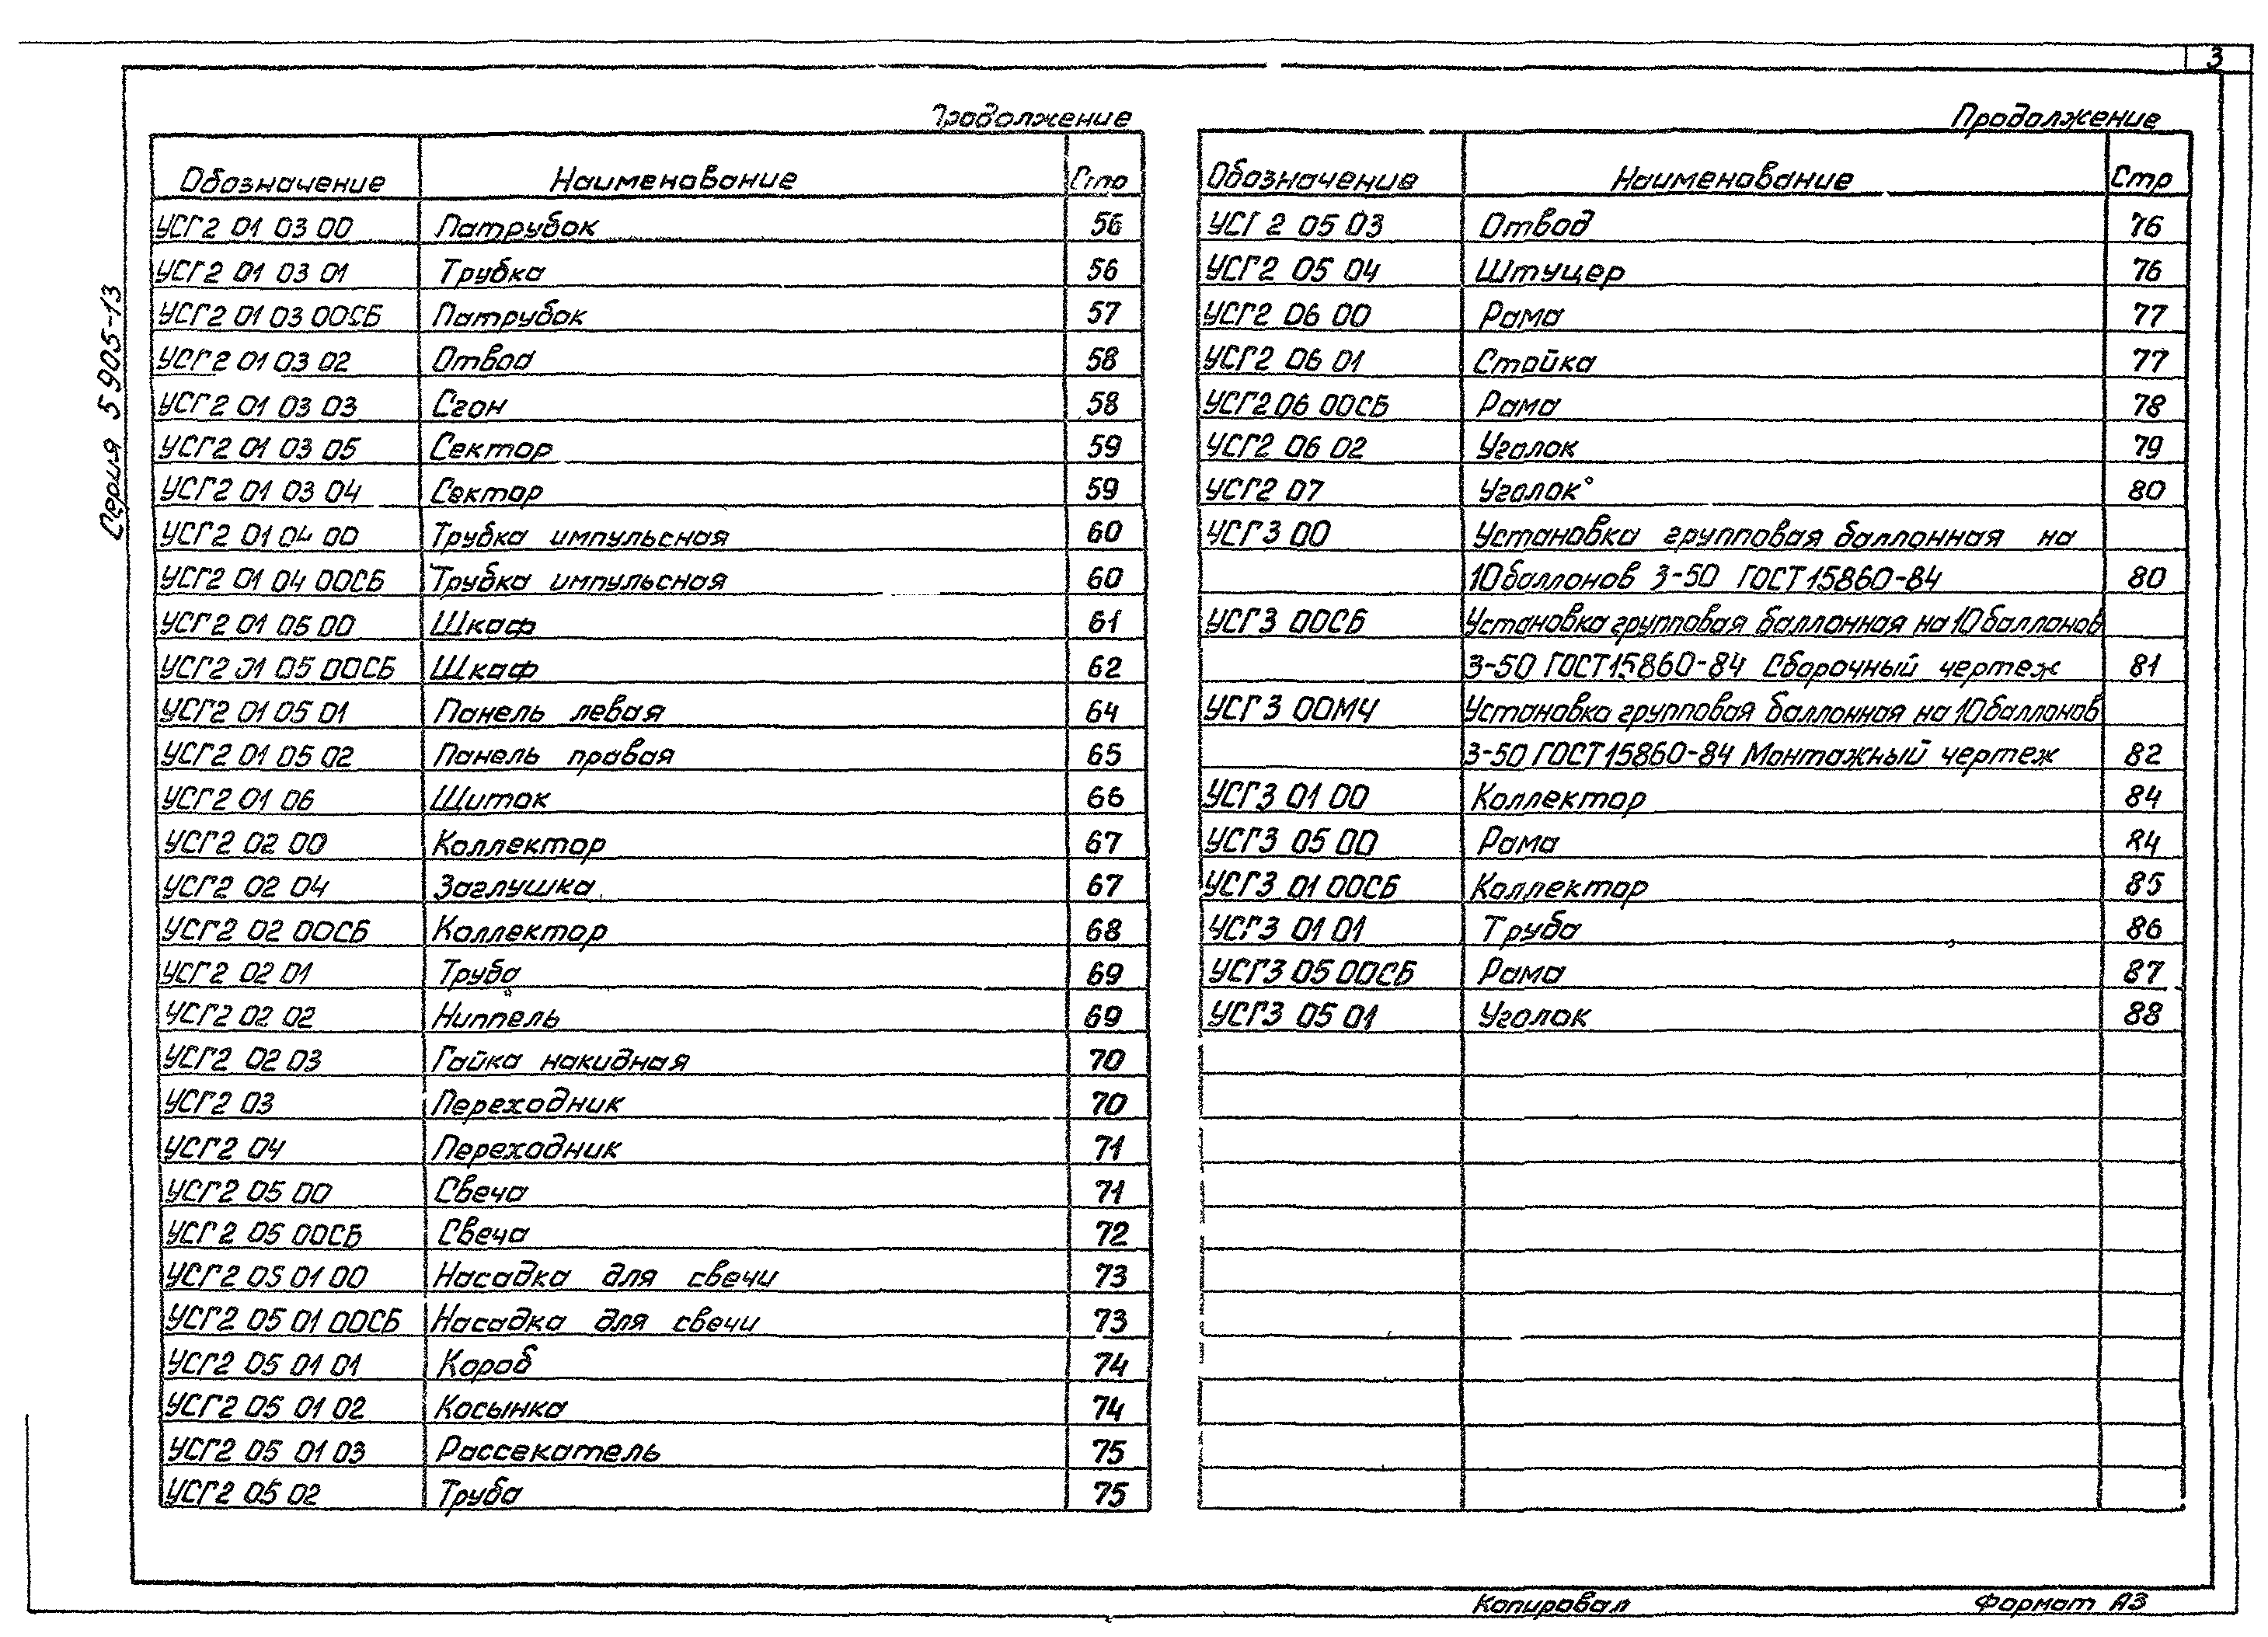 3
Серия 5 905-13
Продолжение
Обозначение Наименование Стр
УСГ2 01 03 00 Патрубок 56
УСГ2 01 03 01 Трубка 56
УСГ2 01 03 00СБ Патрубок 57
УСГ2 01 03 02 Отвод 58
УСГ2 01 03 03 Сгон 58
УСГ2 01 03 05 Сектор 59
УСГ2 01 03 04 Сектор 59
УСГ2 01 04 00 Трубка импульсная 60
УСГ2 01 04 00СБ Трубка импульсная 60
УСГ2 01 05 00 Шкаф 61
УСГ2 01 05 00СБ Шкаф 62
УСГ2 01 05 01 Панель левая 64
УСГ2 01 05 02 Панель правая 65
УСГ2 01 06 Щиток 66
УСГ2 02 00 Коллектор 67
УСГ2 02 04 Заглушка 67
УСГ2 02 00СБ Коллектор 68
УСГ2 02 01 Труба 69
УСГ2 02 02 Ниппель 69
УСГ2 02 03 Гайка накидная 70
УСГ2 03 Переходник 70
УСГ2 04 Переходник 71
УСГ2 05 00 Свеча 71
УСГ2 05 00СБ Свеча 72
УСГ2 05 01 00 Насадка для свечи 73
УСГ2 05 01 00СБ Насадка для свечи 73
УСГ2 05 01 01 Короб 74
УСГ2 05 01 02 Косынка 74
УСГ2 05 01 03 Рассекатель 75
УСГ2 05 02 Труба 75
Продолжение
Обозначение Наименование Стр
УСГ2 05 03 Отвод 76
УСГ2 05 04 Штуцер 76
УСГ2 06 00 Рама 77
УСГ2 06 01 Стойка 77
УСГ2 06 00СБ Рама 78
УСГ2 06 02 Уголок 79
УСГ2 07 Уголок 80
УСГ3 00 Установка групповая баллонная на
10 баллонов 3-50 ГОСТ 15860-84 80
УСГ3 00СБ Установка групповая баллонная на 10 баллонов
3-50 ГОСТ 15860-84 Сборочный чертеж 81
УСГ3 00МЧ Установка групповая баллонная на 10 баллонов
3-50 ГОСТ 15860-84 Монтажный чертеж 82
УСГ3 01 00 Коллектор 84
УСГ3 05 00 Рама 84
УСГ3 01 00СБ Коллектор 85
УСГ3 01 01 Труба 86
УСГ3 05 00СБ Рама 87
УСГ3 05 01 Уголок 88
Копировал Формат А3